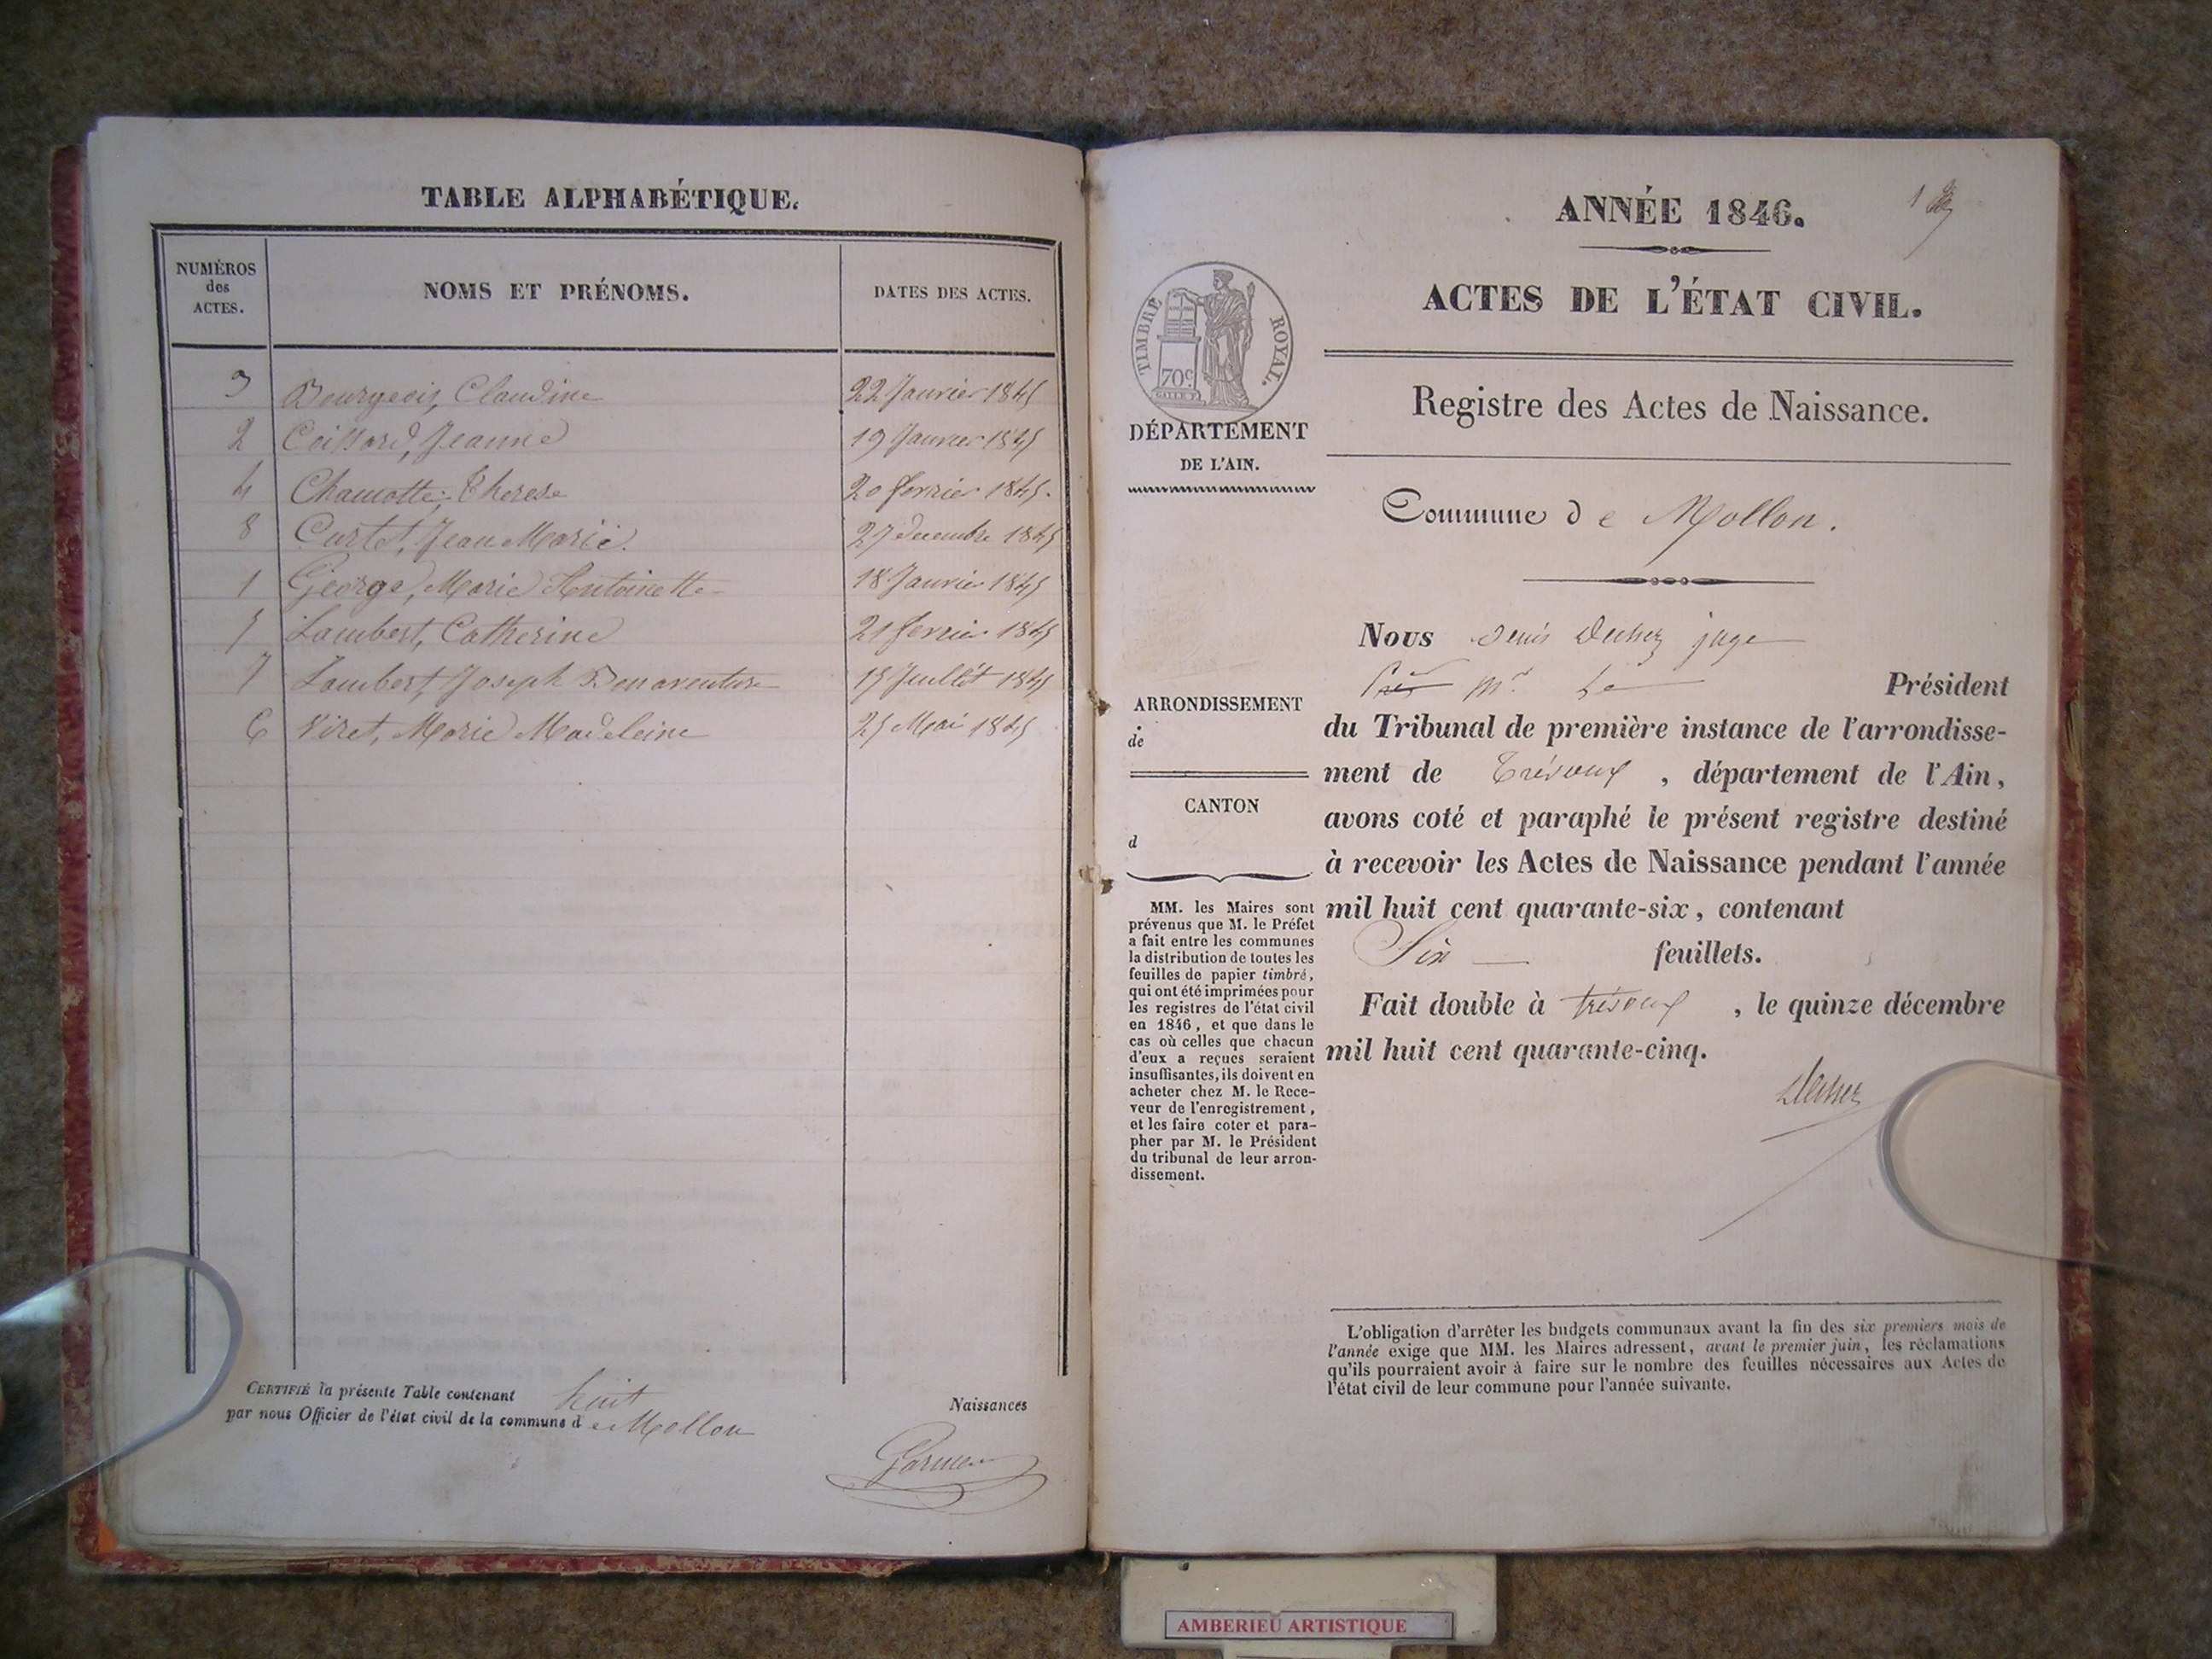 TABLE ALPHABÉTIQUE.
NUMÉROS des ACTES.
NOMS ET PRÉNOMS.
DATES DES ACTES.
3 Bourgeois, Claudine 22 Janvier 1845
2 Coissard, Jeanne 19 Janvier 1845
4 Chamotte, Therese 20 fevrier 1845.
8 Curtet, Jean Marie. 27 decembre 1845
1 George, Marie Antoinette 18 Janvier 1845
5 Lambert, Catherine 21 fevrier 1845
7 Lambert, Joseph Bonaventure 15 Juillet 1845
6 Viret, Marie Madeleine 25 Mai 1845
CERTIFIÉ la présente Table contenant huit Naissances
par nous Officier de l'état civil de la commune d e Mollon
ANNÉE 1846.
1
ACTES DE L'ÉTAT CIVIL.
TIMBRE ROYAL.
70c
DÉPARTEMENT
DE L'AIN.
Registre des Actes de Naissance.
Commune d e Mollon.
Nous Denis juge
Président
du Tribunal de première instance de l'arrondisse-
ment de Trévoux, département de l'Ain,
avons coté et paraphé le présent registre destiné
à recevoir les Actes de Naissance pendant l'année
mil huit cent quarante-six, contenant
Six feuillets.
Fait double à trévoux, le quinze décembre
mil huit cent quarante-cinq.
ARRONDISSEMENT
de
CANTON
d
MM. les Maires sont
prévenus que M. le Préfet
a fait entre les communes
la distribution de toutes les
feuilles de papier timbré,
qui ont été imprimées pour
les registres de l'état civil
en 1846, et que dans le
cas où celles que chacun
d'eux a reçues seraient
insuffisantes, ils doivent en
acheter chez M. le Rece-
veur de l'enregistrement,
et les faire coter et para-
pher par M. le Président
du tribunal de leur arron-
dissement.
L'obligation d'arrêter les budgets communaux avant la fin des six premiers mois de
l'année exige que MM. les Maires adressent, avant le premier juin, les réclamations
qu'ils pourraient avoir à faire sur le nombre des feuilles nécessaires aux Actes de
l'état civil de leur commune pour l'année suivante.
AMBERIEU ARTISTIQUE